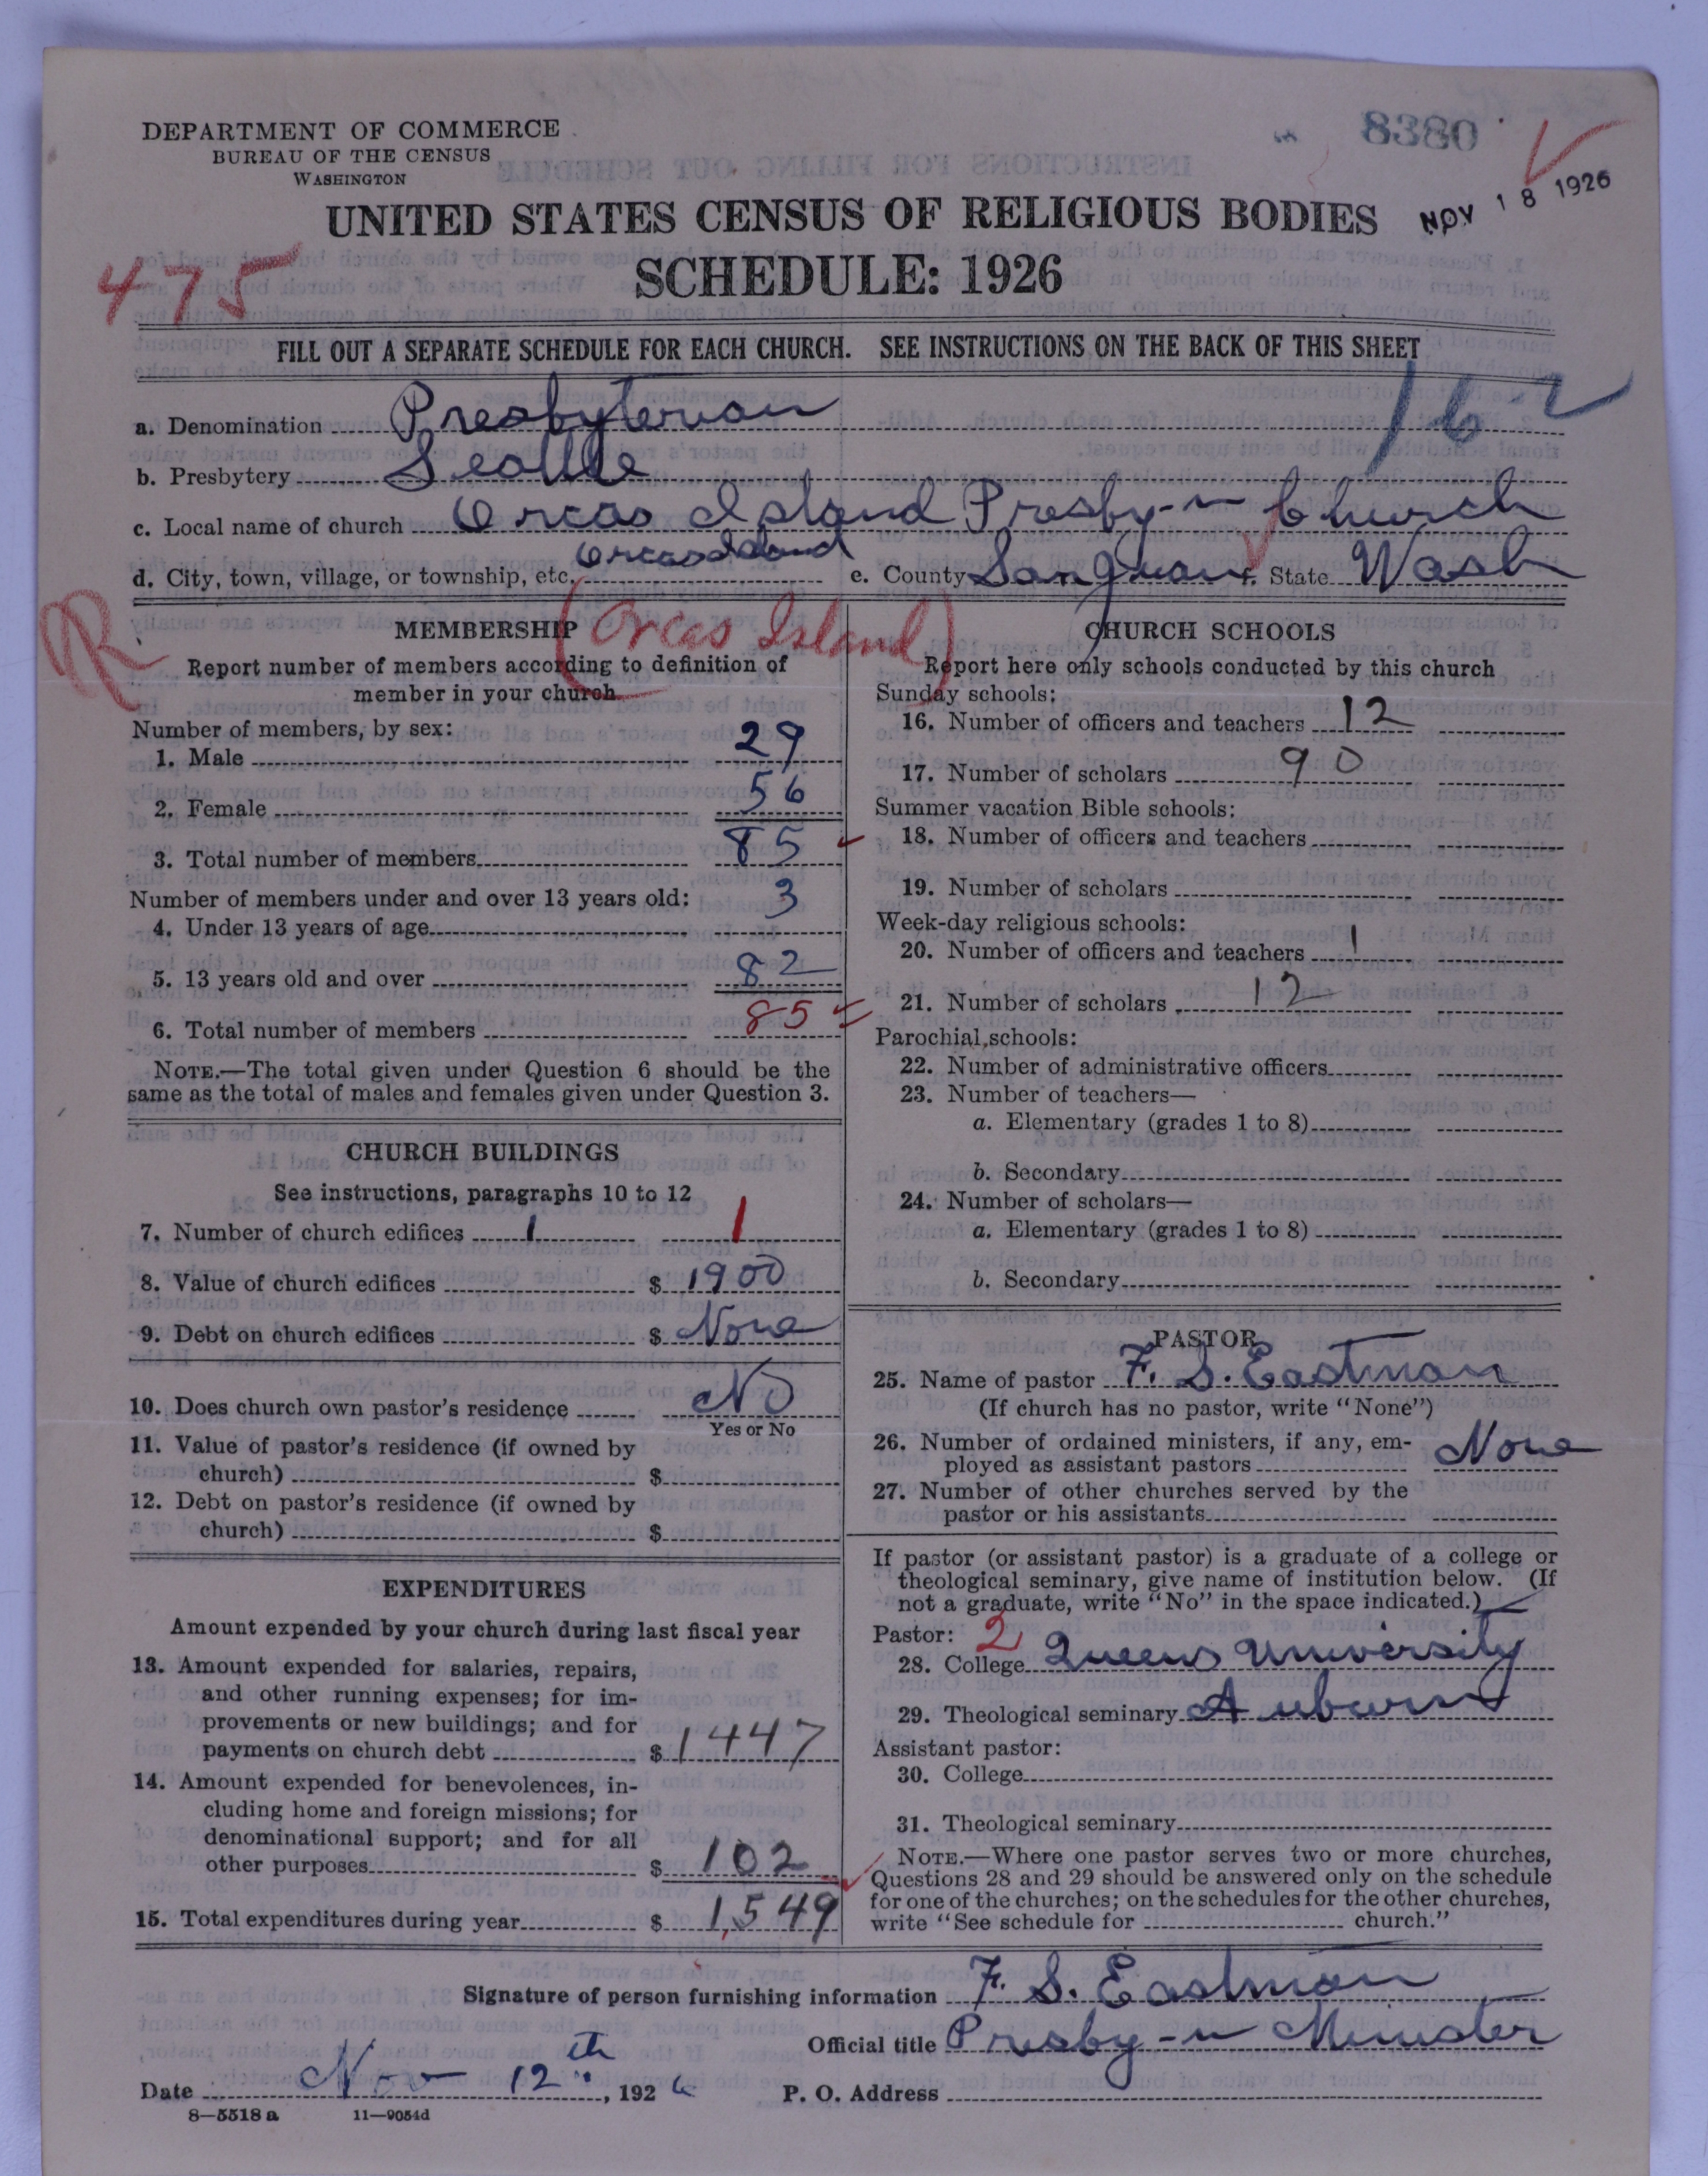 DEPARTMENT OF COMMERCE
BUREAU OF THE CENSUS
WASHINGTON
8380
NOV 18 1926
UNITED STATES CENSUS OF RELIGIOUS BODIES
SCHEDULE: 1926
475
FILL OUT A SEPARATE SCHEDULE FOR EACH CHURCH. SEE INSTRUCTIONS ON THE BACK OF THIS SHEET
162
a. Denomination Presbyterian
b. Presbytery Seattle
c. Local name of church Orcas Island Presby-n Church
d. City, town, village, or township, etc. Orcas Island e. County San Juan f. State Wash
R (Orcas Island)
MEMBERSHIP
Report number of members according to definition of
member in your church
Number of members, by sex:
1. Male 29
2. Female 56
3. Total number of members 85
Number of members under and over 13 years old:
4. Under 13 years of age 3
5. 13 years old and over 82
6. Total number of members 85
NOTE.—The total given under Question 6 should be the
same as the total of males and females given under Question 3.
CHURCH BUILDINGS
See instructions, paragraphs 10 to 12
7. Number of church edifices 1 1
8. Value of church edifices $ 1900
9. Debt on church edifices $ None
10. Does church own pastor's residence No
Yes or No
11. Value of pastor's residence (if owned by
church) $
12. Debt on pastor's residence (if owned by
church) $
EXPENDITURES
Amount expended by your church during last fiscal year
13. Amount expended for salaries, repairs,
and other running expenses; for im-
provements or new buildings; and for
payments on church debt $ 1447
14. Amount expended for benevolences, in-
cluding home and foreign missions; for
denominational support; and for all
other purposes $ 102
15. Total expenditures during year $ 1,549
CHURCH SCHOOLS
Report here only schools conducted by this church
Sunday schools:
16. Number of officers and teachers 12
17. Number of scholars 90
Summer vacation Bible schools:
18. Number of officers and teachers
19. Number of scholars
Week-day religious schools:
20. Number of officers and teachers 1
21. Number of scholars 12
Parochial schools:
22. Number of administrative officers
23. Number of teachers—
a. Elementary (grades 1 to 8)
b. Secondary
24. Number of scholars—
a. Elementary (grades 1 to 8)
b. Secondary
PASTOR
25. Name of pastor F. S. Eastman
(If church has no pastor, write "None")
26. Number of ordained ministers, if any, em-
ployed as assistant pastors None
27. Number of other churches served by the
pastor or his assistants
If pastor (or assistant pastor) is a graduate of a college or
theological seminary, give name of institution below. (If
not a graduate, write "No" in the space indicated.)
Pastor: 2
28. College Queens University
29. Theological seminary Auburn
Assistant pastor:
30. College
31. Theological seminary
NOTE.—Where one pastor serves two or more churches,
Questions 28 and 29 should be answered only on the schedule
for one of the churches; on the schedules for the other churches,
write "See schedule for church."
Signature of person furnishing information F. S. Eastman
Official title Presby-n Minister
Date Nov 12th, 1926 P. O. Address
8—5518 a 11—9054d